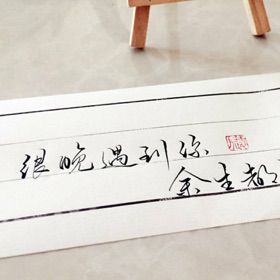 很晚遇到你
余生都